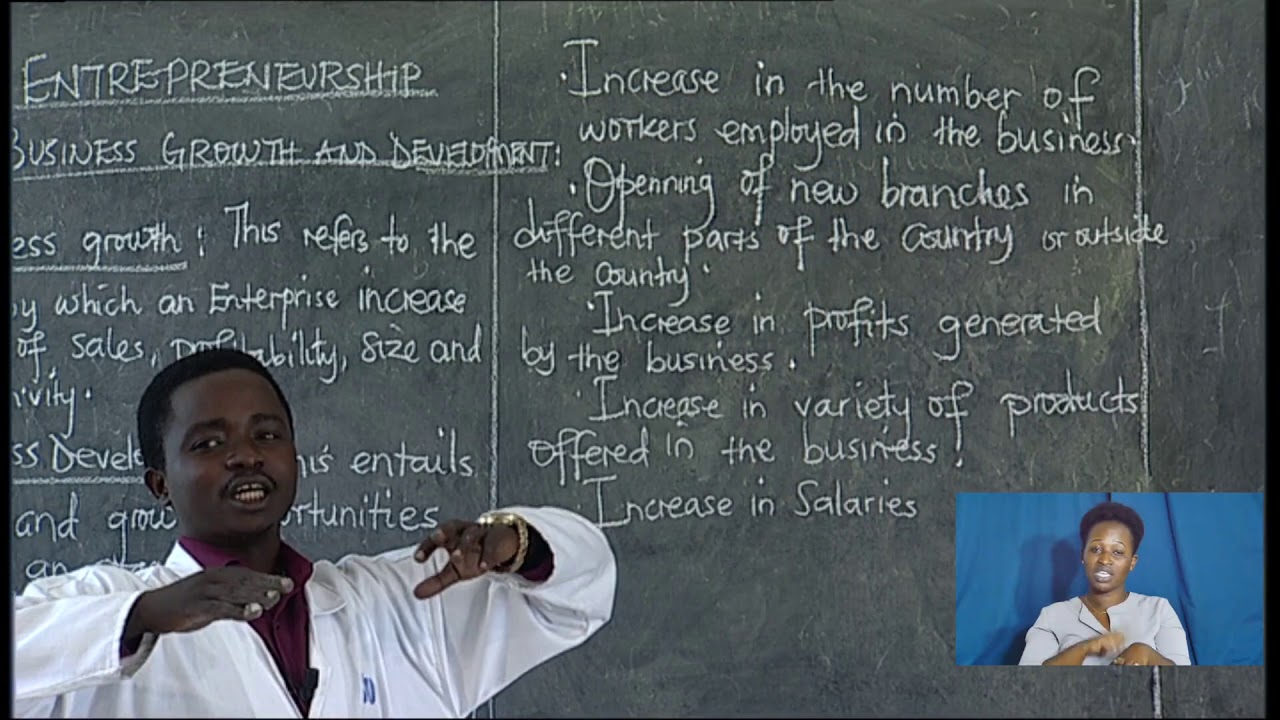 ENTREPRENEURSHIP
BUSINESS GROWTH AND DEVELOPMENT:
ess growth: This refers to the
by which an Enterprise increase
of sales, profitability, size and
ivity.
ss Devel his entails
and grow rtunities
an
. Increase in the number of
workers employed in the business.
. Openning of new branches in
different parts of the country or outside
the country.
. Increase in profits generated
by the business.
. Increase in variety of products
offered in the business.
. Increase in Salaries